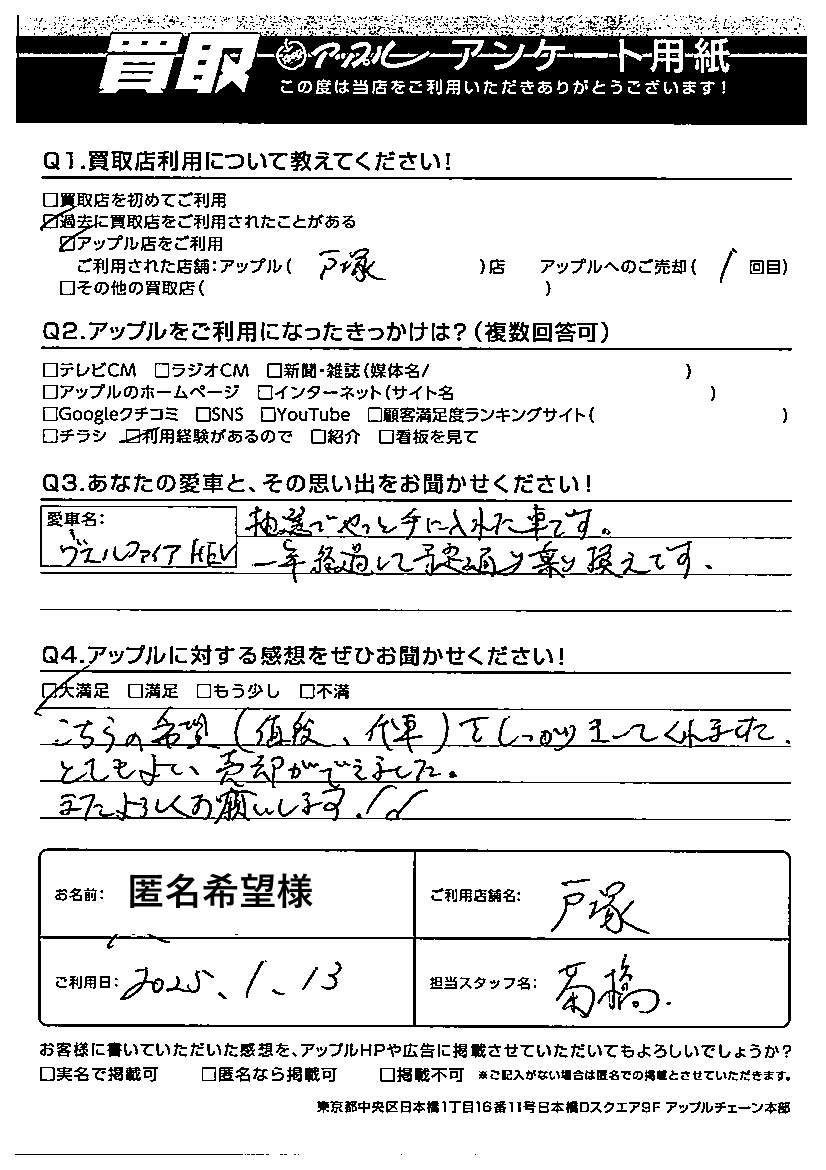 買取 アップル アンケート用紙
この度は当店をご利用いただきありがとうございます!
Q1.買取店利用について教えてください!
□買取店を初めてご利用
☑過去に買取店をご利用されたことがある
☑アップル店をご利用
ご利用された店舗:アップル( 戸塚 )店 アップルへのご売却( 1 回目)
□その他の買取店( )
Q2.アップルをご利用になったきっかけは?(複数回答可)
□テレビCM □ラジオCM □新聞・雑誌(媒体名/ )
□アップルのホームページ □インターネット(サイト名 )
□Googleクチコミ □SNS □YouTube □顧客満足度ランキングサイト( )
□チラシ ☑利用経験があるので □紹介 □看板を見て
Q3.あなたの愛車と、その思い出をお聞かせください!
愛車名:
ヴェルファイアHEV
抽選でやっと手に入れた車です。
一年経過して予定通り乗り換えです.
Q4.アップルに対する感想をぜひお聞かせください!
☑大満足 □満足 □もう少し □不満
こちらの希望(値段、代車)をしっかり まってくれました.
とてもよい売却ができました。
またよろしくお願いします!!
お名前: 匿名希望様
ご利用店舗名: 戸塚
ご利用日: 2025、1、13
担当スタッフ名: 橋.
お客様に書いていただいた感想を、アップルHPや広告に掲載させていただいてもよろしいでしょうか?
□実名で掲載可 □匿名なら掲載可 □掲載不可 ※ご記入がない場合は匿名での掲載とさせていただきます。
東京都中央区日本橋1丁目16番11号日本橋Dスクエア9F アップルチェーン本部